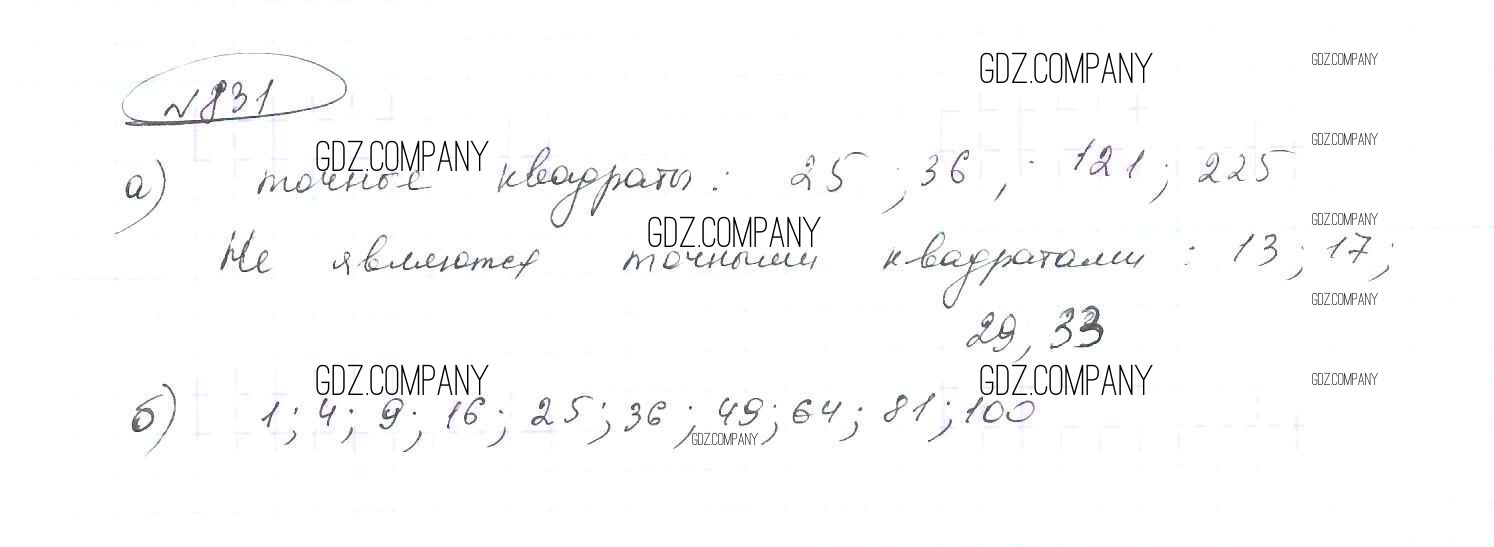 №831
GDZ.COMPANY GDZ.COMPANY
GDZ.COMPANY GDZ.COMPANY
а) точные квадраты: 25; 36; 121; 225
GDZ.COMPANY GDZ.COMPANY
Не являются точными квадратами: 13; 17;
GDZ.COMPANY
29, 33
GDZ.COMPANY GDZ.COMPANY GDZ.COMPANY
б) 1; 4; 9; 16; 25; 36; 49; 64; 81; 100
GDZ.COMPANY